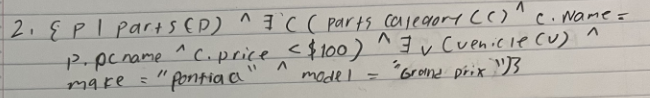 2. { P | parts(P) ^ ∃ C ( parts category (C) ^ C. Name =
P. pcname ^ C. price < $100) ^ ∃ v (vehicle (v) ^
make = "pontiac" ^ model = "Grand prix")}